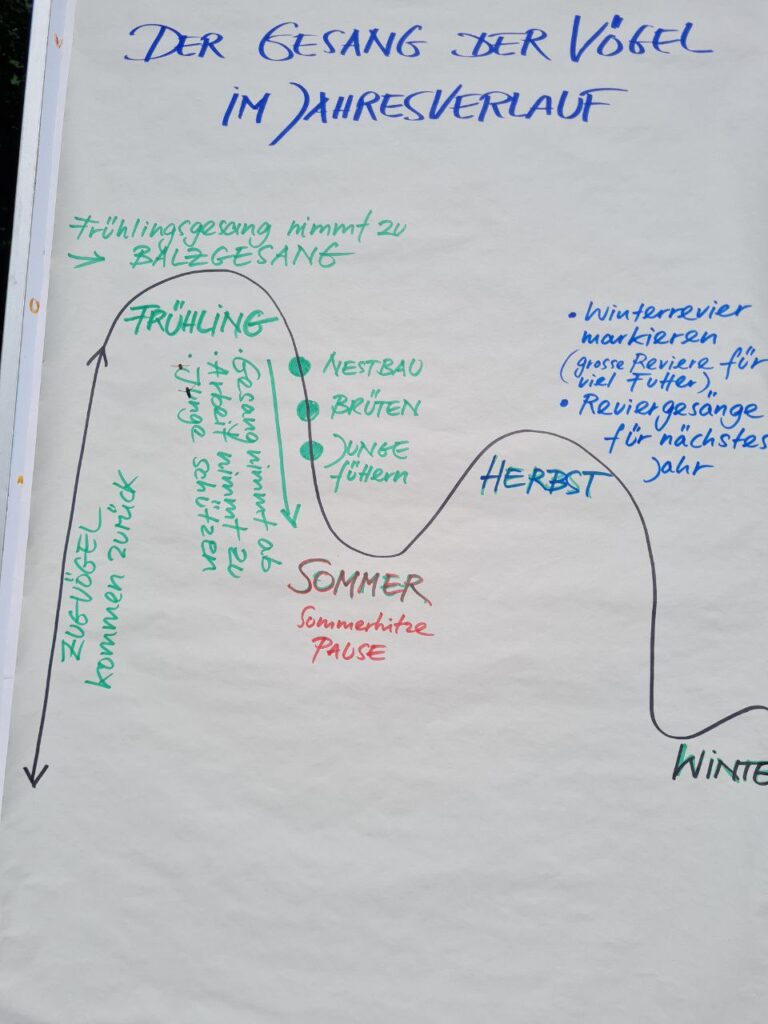 DER GESANG DER VÖGEL
IM JAHRESVERLAUF
Frühlingsgesang nimmt zu
BALZGESANG
FRÜHLING
• Gesang nimmt ab
• Arbeit nimmt zu
• Junge schützen
NESTBAU
BRÜTEN
JUNGE
füttern
ZUGVÖGEL
kommen zurück
SOMMER
Sommerhitze
PAUSE
• Winterrevier
markieren
(grosse Reviere für
viel Futter)
• Reviergesänge
für nächstes
Jahr
HERBST
WINTE